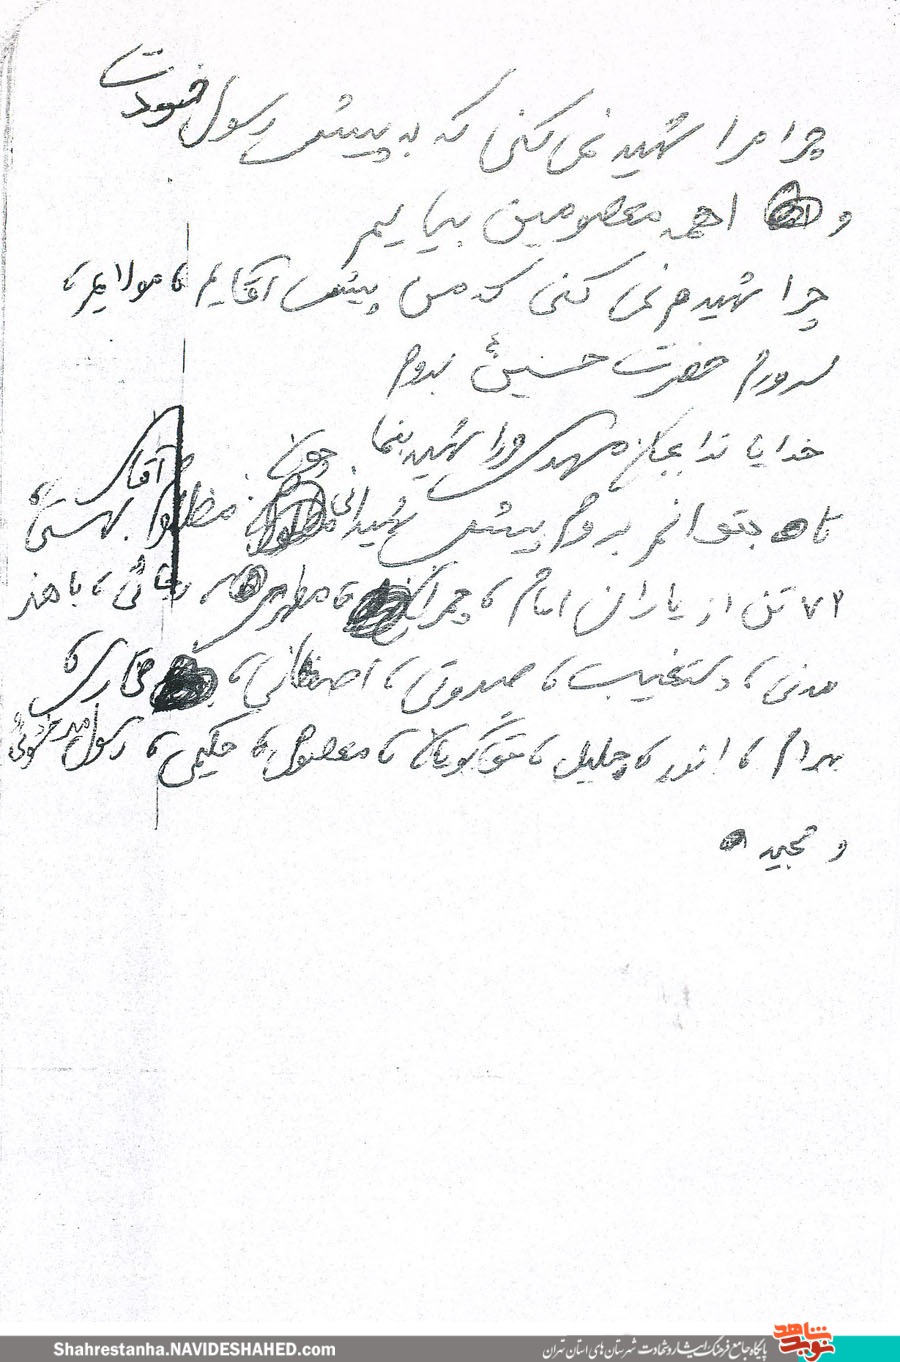 چرا مرا شهید نمی کنی که به پیش رسول خودت
و ائمه معصومین بیایم
چرا شهیدم نمی کنی که من پیش آقایم، مولایم،
سرورم حضرت حسین بروم
خدایا ترا بجان مهدی مرا شهید بنما چون
تا بتوانم بروم پیش شهیدانی مظلوم آقای بهشتی،
۷۲ تن از یاران امام، چمران، مطهری، رجائی، باهنر
مدنی، دستغیب، صدوقی، اصفهانی،
بهرام، انور، جلیل، معصوم، حکیمی، رسول
و مجید
Shahrestanha.NAVIDESHAHED.com
پایگاه جامع فرهنگ ایثار و شهادت شهرستان های استان تهران
نوید شاهد